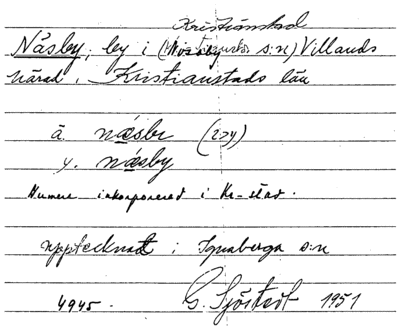 Kristianstad
Näsby, by i (Norra s:n) Villands
härad, Kristianstads län
ä. næsbr (27y)
y. næsby
Numera inkorporerad i Kr-stad.
upptecknat i Ignaberga s:n
4945. G. Sjöstedt 1951